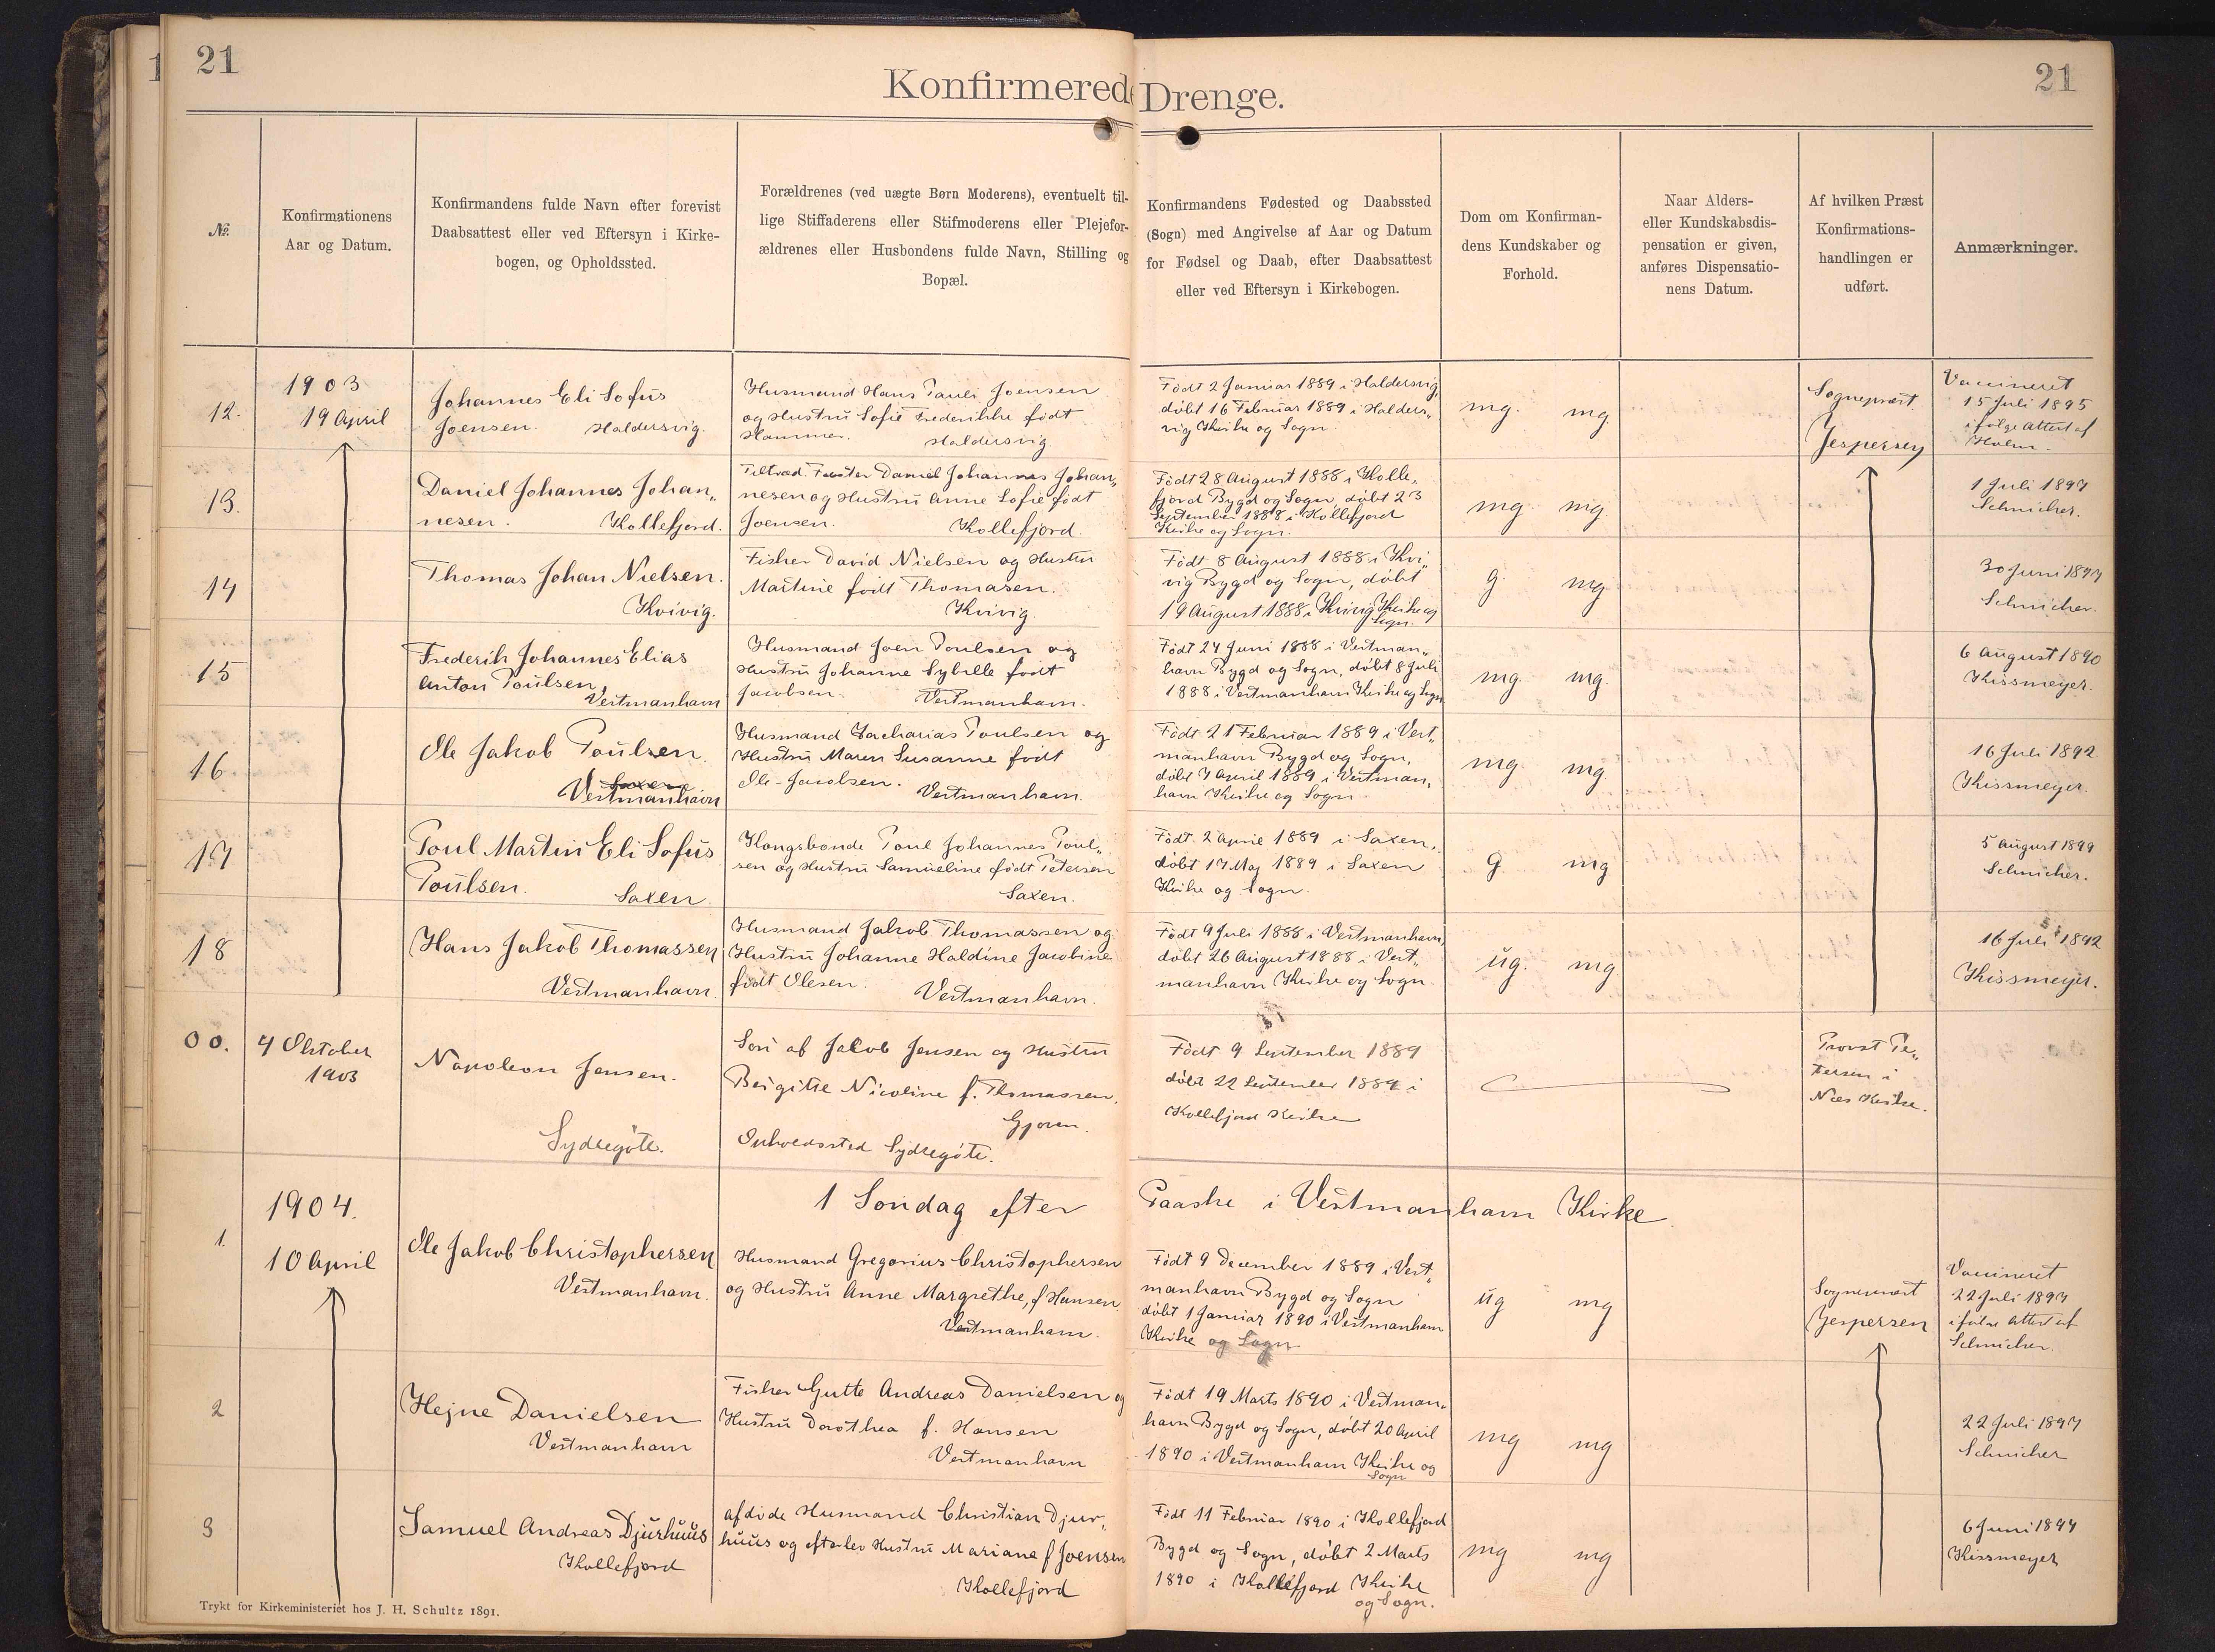 21
21
Konfirmerede Drenge.
№.
Konfirmationens
Aar og Datum.
Konfirmandens fulde Navn efter forevist
Daabsattest eller ved Eftersyn i Kirke-
bogen, og Opholdssted.
Forældrenes (ved uægte Børn Moderens), eventuelt til-
lige Stiffaderens eller Stifmoderens eller Plejefor-
ældrenes eller Husbondens fulde Navn, Stilling og
Bopæl.
Konfirmandens Fødested og Daabssted
(Sogn) med Angivelse af Aar og Datum
for Fødsel og Daab, efter Daabsattest
eller ved Eftersyn i Kirkebogen.
Dom om Konfirman-
dens Kundskaber og
Forhold.
Naar Alders-
eller Kundskabsdis-
pensation er given,
anføres Dispensatio-
nens Datum.
Af hvilken Præst
Konfirmations-
handlingen er
udført.
Anmærkninger.
12.
1903
19 April
Johannes Eli Sofus
Joensen. Haldersvig.
Husmand Hans Pauli Joensen
og Hustru Sofie Frederikke født
Hammer. Haldersvig.
Født 2 Januar 1889 i Haldersvig,
døbt 16 Februar 1889 i Halders„
vig Kirke og Sogn.
mg. mg.
Sognepræst
Jespersen
Vaccineret
15 Juli 1895
ifølge Attest af
Holm.
13.
Daniel Johannes Johan„
nesen. Kollefjord.
Tiltræd. Fæster Daniel Johannes Johan„
nesen og Hustru Anne Sofie født
Joensen. Kollefjord.
Født 28 August 1888 i Kolle„
fjord Bygd og Sogn, døbt 23
September 1888 i Kollefjord
Kirke og Sogn.
mg mg.
1 Juli 1897
Schmicher.
14
Thomas Johan Nielsen.
Kvivig.
Fisker David Nielsen og Hustru
Martine født Thomasen.
Kvivig
Født 8 August 1888 i Kvi„
vig Bygd og Sogn, døbt
19 August 1888 i Kvivig Kirke og
Sogn.
g. mg
30 Juni 1897
Schmicher.
15
Frederik Johannes Elias
Anton Poulsen,
Vestmanhavn
Husmand Joen Poulsen og
Hustru Johanne Sybille født
Jacobsen. Vestmanhavn.
Født 24 Juni 1888 i Vestman„
havn Bygd og Sogn, døbt 8 Juli
1888 i Vestmanhavn Kirke og Sogn
mg. mg.
6 August 1890
Kissmeyer.
16
Ole Jakob Poulsen.
Saxen
Vestmanhavn
Husmand Zacharias Poulsen og
Hustru Maren Susanne født
Ole-Jacobsen. Vestmanhavn.
Født 21 Februar 1889 i Vest„
manhavn Bygd og Sogn,
døbt 7 April 1889 i Vestman„
havn Kirke og Sogn.
mg. mg
16 Juli 1892
Kissmeyer.
17
Poul Martin Eli Sofus
Poulsen. Saxen
Kongsbonde Poul Johannes Poul„
sen og Hustru Samueline født Petersen
Saxen.
Født 2 April 1889 i Saxen,
døbt 17 Maj 1889 i Saxen
Kirke og Sogn.
g. mg
5 August 1899
Schmicher.
18
Hans Jakob Thomassen
Vestmanhavn.
Husmand Jakob Thomassen og
Hustru Johanne Haldine Jacobine
født Olesen. Vestmanhavn.
Født 9 Juli 1888 i Vestmanhavn,
døbt 26 August 1888 i Vest„
manhavn Kirke og Sogn
ug. mg
16 Juli 1892
Kissmeyer.
00.
4 Oktober
1903
Napoleon Jensen.
Sydregöte.
Søn af Jakob Jensen og Hustru
Birgitte Nicoline f. Thomassen.
Gjoven.
Opholdssted Sydregöte.
Født 9 September 1889
døbt 22 September 1889 i
Kollefjord Kirke
Provst Pe„
tersen i
Næs Kirke.
1904.
1 Søndag efter Paaske i Vestmanhavn Kirke.
1.
10 April
Ole Jakob Christophersen
Vestmanhavn.
Husmand Gregorius Christophersen
og Hustru Anne Margrethe, f Hansen
Vestmanhavn.
Født 9 December 1889 i Vest„
manhavn Bygd og Sogn
døbt 1 Januar 1890 i Vestmanhavn
Kirke og Sogn
ug mg
Sognepræst
Jespersen
Vaccineret
22 Juli 1897
ifølge Attest af
Schmicher.
2
Hejne Danielsen
Vestmanhavn
Fisker Gutte Andreas Danielsen og
Hustru Dorothea f. Hansen
Vestmanhavn
Født 19 Marts 1890 i Vestman„
havn Bygd og Sogn, døbt 20 April
1890 i Vestmanhavn Kirke og
Sogn
mg mg
22 Juli 1897
Schmicher
3
Samuel Andreas Djurhuus
Kollefjord
afdøde Husmand Christian Djur„
huus og efterlev Hustru Mariane f Joensen
Kollefjord
Født 11 Februar 1890 i Kollefjord
Bygd og Sogn, døbt 2 Marts
1890 i Kollefjord Kirke
og Sogn.
mg mg
6 Juni 1894
Kissmeyer
Trykt for Kirkeministeriet hos J. H. Schultz 1891.